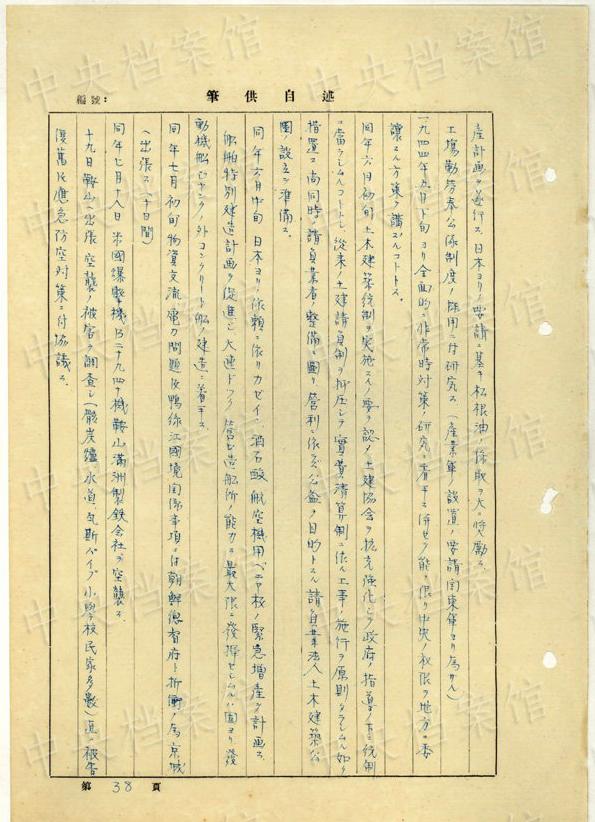 述自供筆
編號:
産計画ヲ遂行ス 日本ヨリノ要請ニ基キ松根油ノ採取ヲ大ニ奨励ス
工場勤労奉公隊制度ノ採用ニ付研究ス(産業軍ノ設置ノ要請関東軍ヨリ為カル)
一九四四年五月下旬ヨリ全面的ニ非常時対策ノ研究ニ着手ス 併セテ能フ限リ中央ノ权限ヲ地方ニ委
譲スル方策ヲ講ズルコトトス
同年六月初旬土木建築統制ヲ実施スルノ要ヲ認メ土建協会ヲ拡充強化シテ政府ノ指導ノ下ニ統制
ニ當ラシムルコトトシ、従来ノ土建請負制ヲ抑圧シテ實費清算制ニ依ル工事ノ施行ヲ原則タラシムル如ク
措置ス 尚同時ニ請負業者ノ整備ヲ図リ営利ニ依ラズ公益ヲ目的トスル請負業法人土木建築公
團ノ設立ヲ準備ス
同年六月中旬 日本ヨリノ依頼ニ依リカゼイン、酒石酸航空機用ベニヤ板ノ緊急増産ヲ計画ス
船舶特別建造計画ヲ促進シ大連ドック、営口造船所ノ能力ヲ最大限ニ發揮セシムルハ固ヨリ發
動機船セヤンクノ外コンクリート船ノ建造ニ着手ス
同年七月初旬物資交流電力問題及鴨緑江國境関係事項ニ付朝鮮總督府ト折衝ノ為京城
ヘ出張ス(十日間)
同年七月十八日 米國爆撃機B二十九四十機鞍山満洲製鉄会社ヲ空襲ス
十九日鞍山ヘ出張空襲ノ被害ヲ調査シ(骸炭爐、水道、瓦斯パイプ 小學校 民家多数)直ニ被害
復舊及應急防空対策ニ付協議ス
第 38 頁
中央档案馆